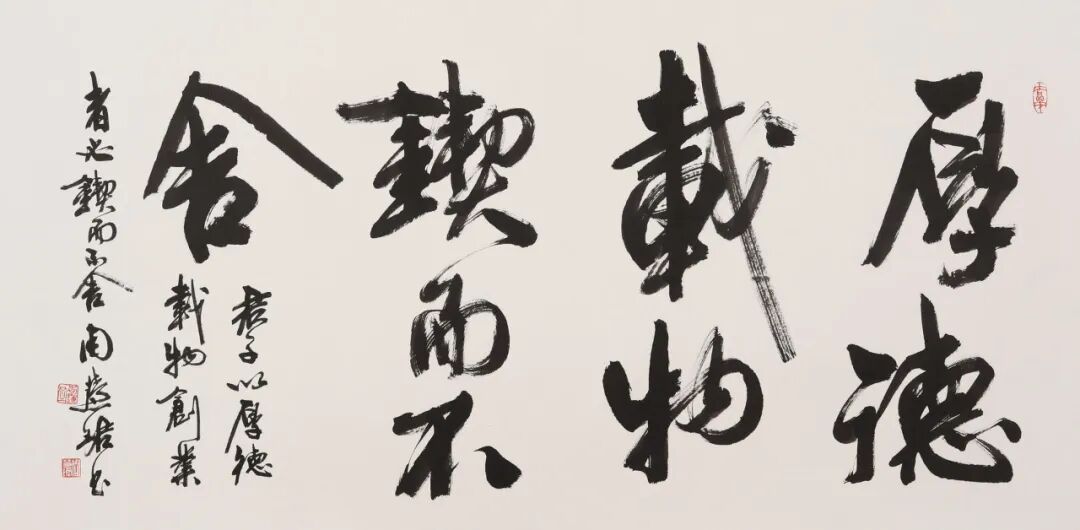 厚德
載物
鍥而不
舍
君子以厚德
載物創業
者必鍥而不舍 周慧珺书